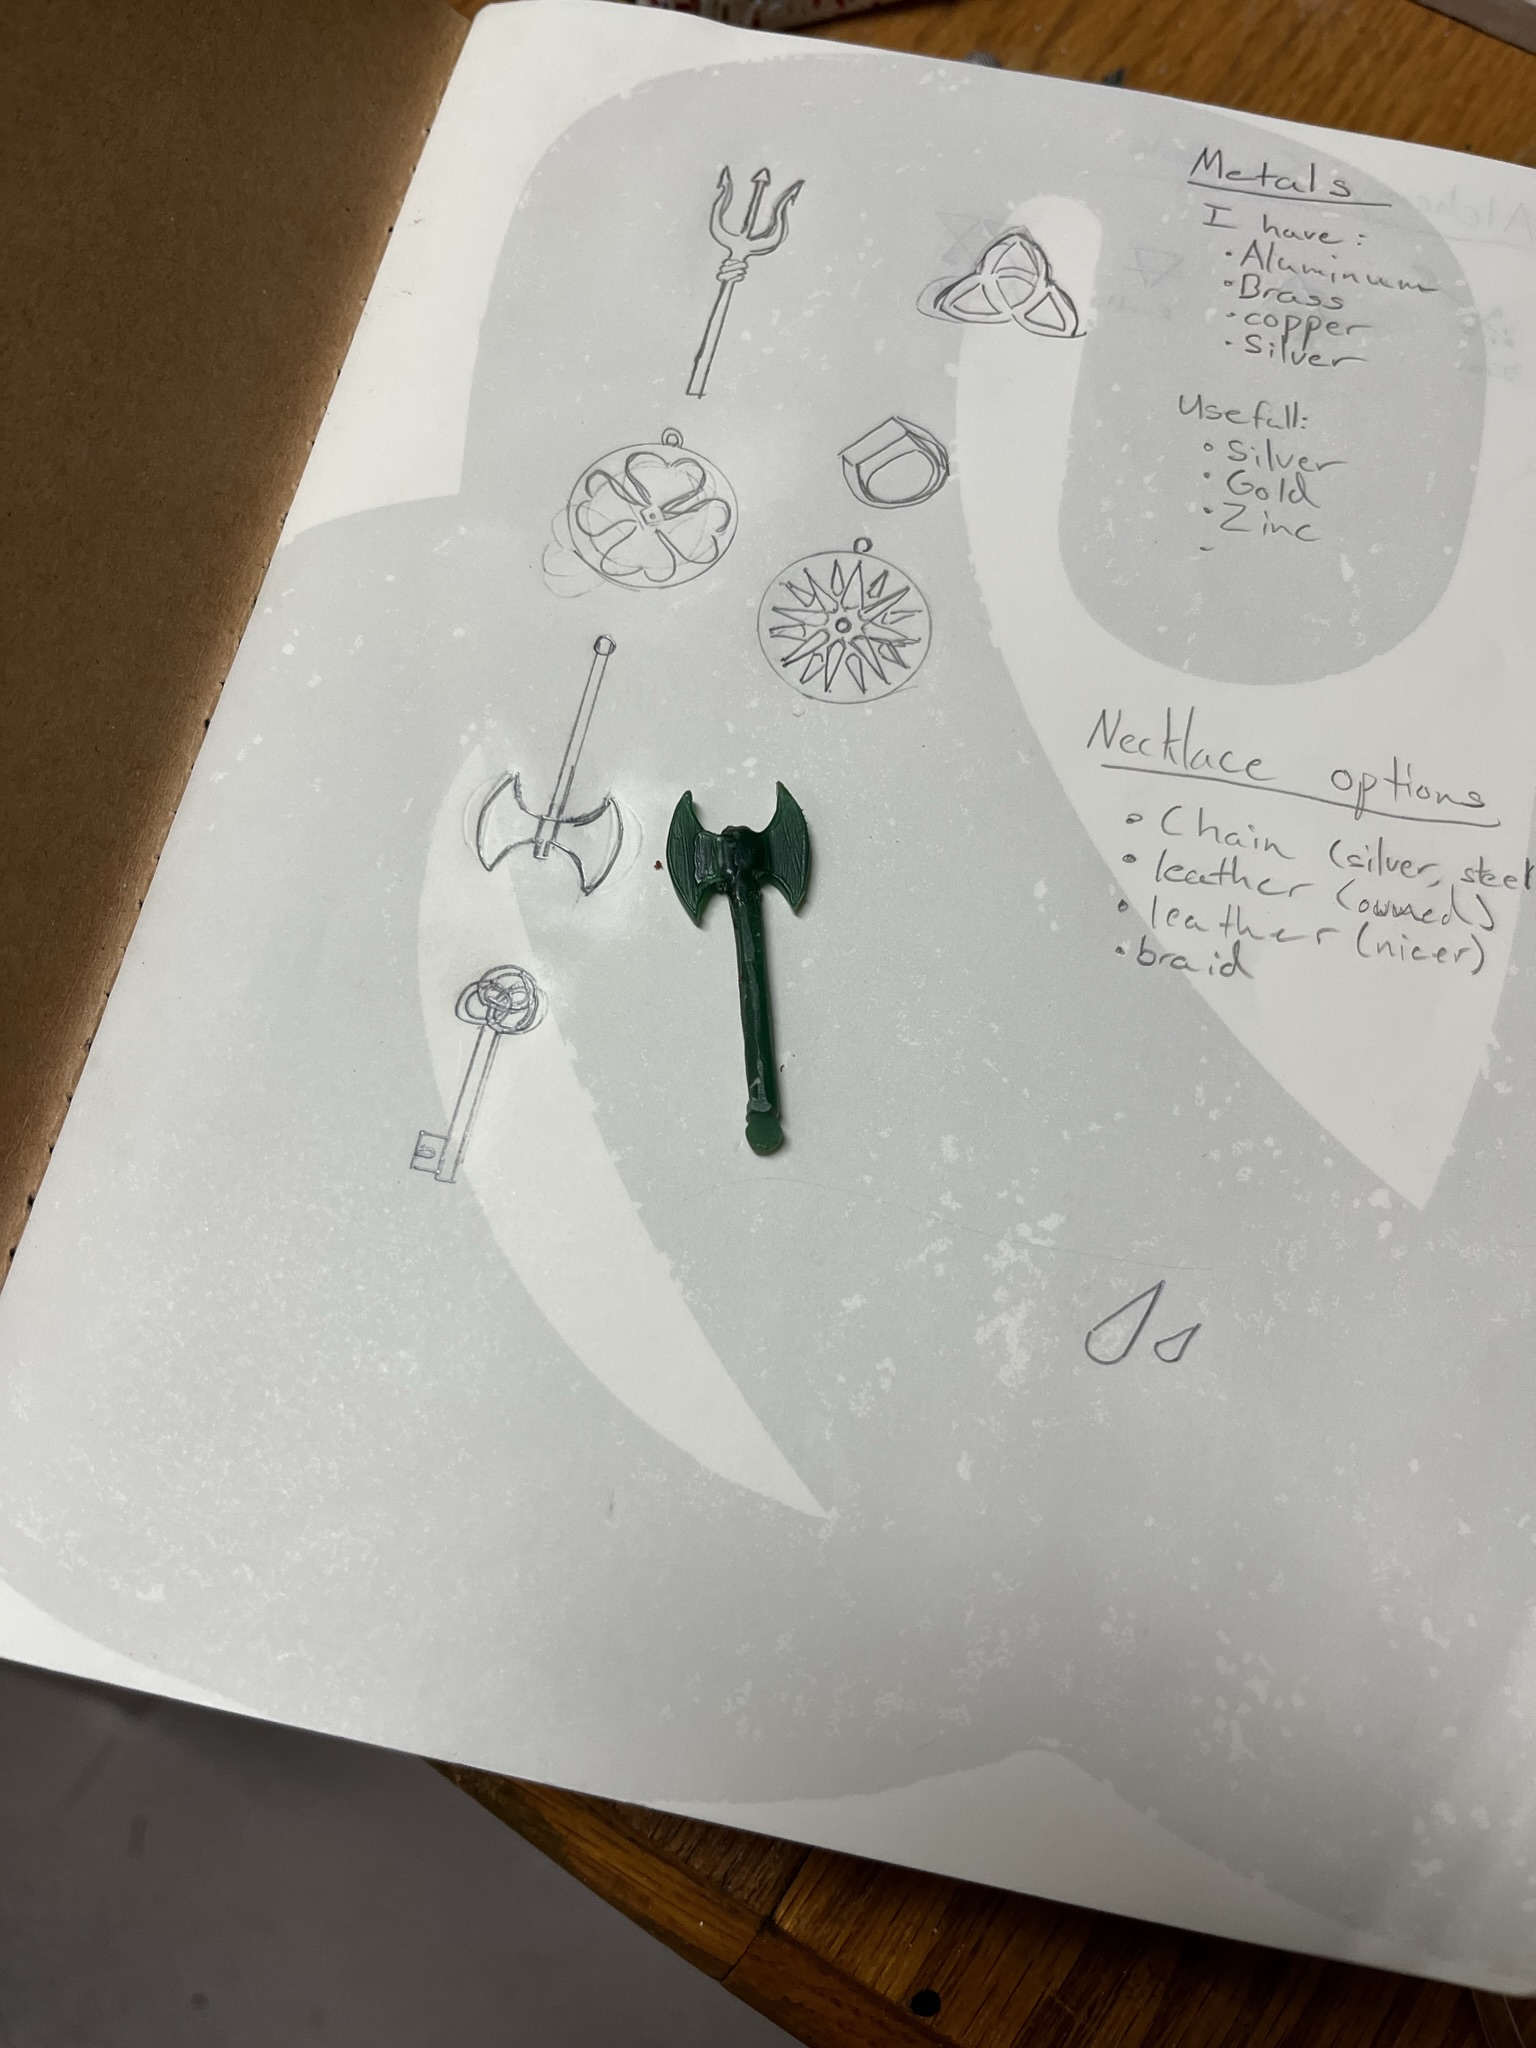 Metals
I have:
• Aluminum
• Brass
• copper
• Silver
Usefull:
• Silver
• Gold
• Zinc
-
Necklace options
• Chain (silver, steel
• leather (owned)
• leather (nicer)
• braid